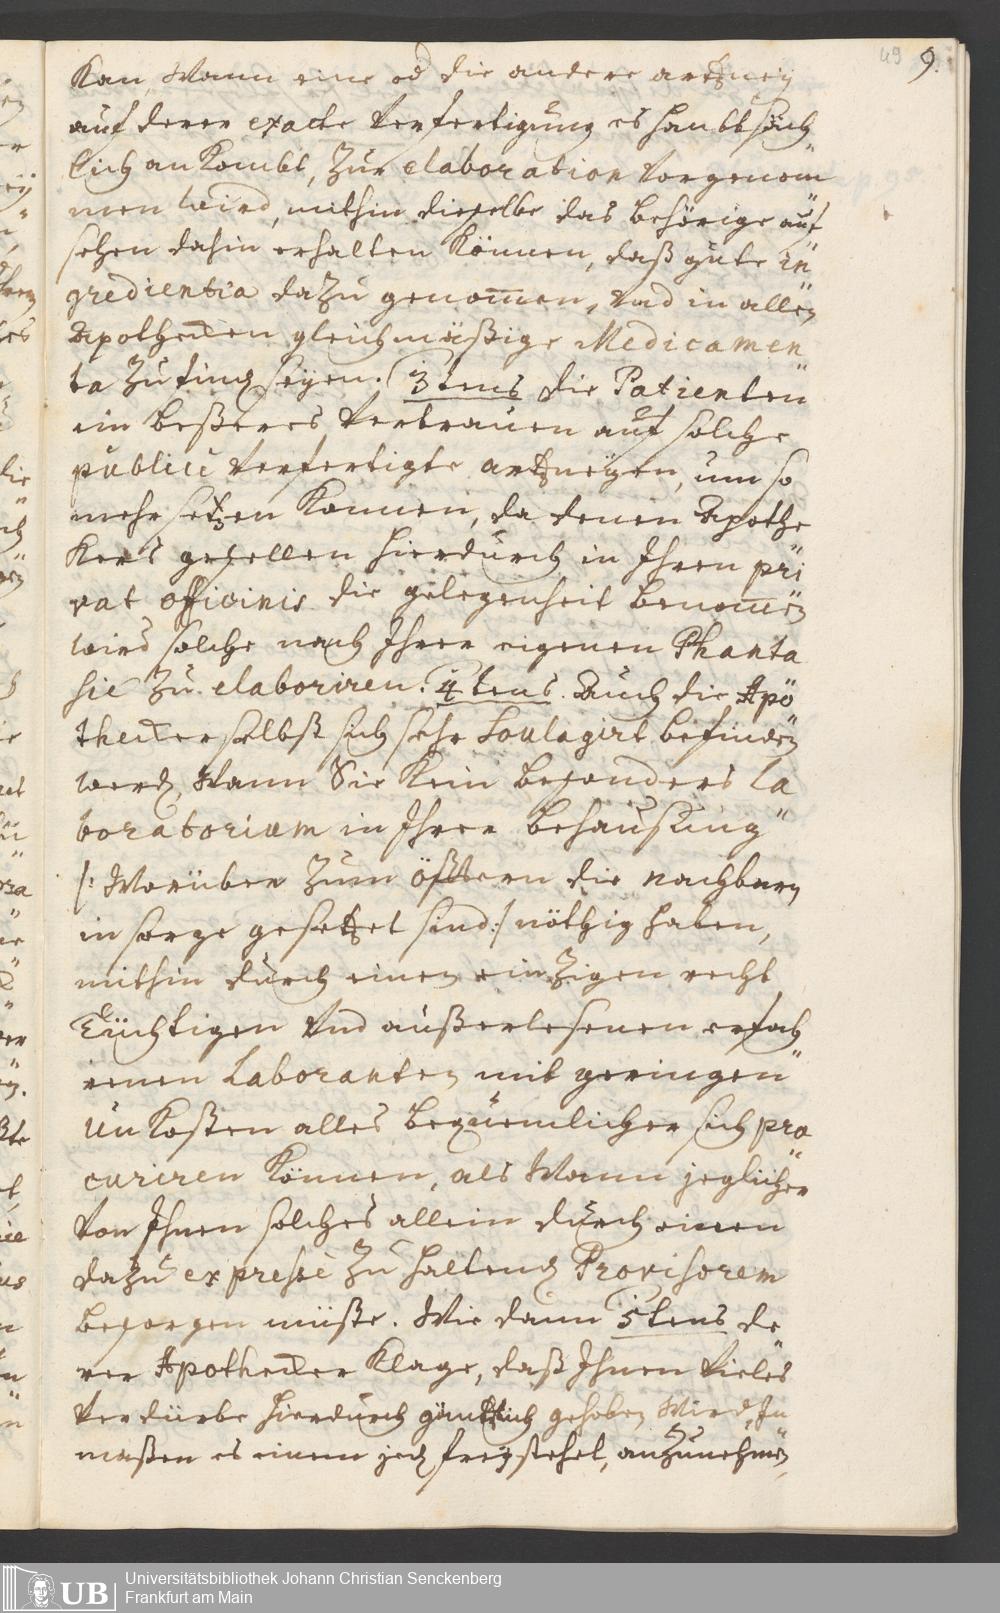 49 9.
Kan, Wann eine od die andere artzneÿ
auf deren exacte Verfertigung es haubtsäch
lich ankombt, zur elaboration vorgenom
men wird, mithin dieselbe das behörige auf
sehen dahin erhalten können, daß gute in
gredientia dazu genomen, und in allen
Apothecken gleichmäßige Medicamen
ta zu find seÿen. 3tens die Patienten
ein beßeres Vertrauen auf solche
publicè verfertigte artzneÿen, um so
mehr setzen können, da denen Apothe
kers gesellen hierdurch in Ihren pri
vat officinis die gelegenheit benomen
wird solche nach Ihrer eigenen Phanta
sie zu elaboriren. 4tens. Auch die Apo
thecker selbst sich sehr soulagirt befinden
werd, Wann Sie kein besonders la
boratorium in Ihrer behausung
/: Worüber zum öfftern die nachbarn
in sorge gesetzet sind :/ nöthig haben,
mithin durch einen einzigen recht
tüchtigen und außerlesenen erfah
renen Laboranten mit geringen
unkosten alles bequemlicher sich pro
curiren können, als Wann jeglicher
von Ihnen solches allein durch einen
dazu expressè zu haltend Provisorem
besorgen müßte. Wie dann 5tens de
ren Apothecker Klage, daß Ihnen vieles
verdürbe hierdurch gäntzlich gehoben Wird, In
maßen es einem jed freÿstehet, anzunehmen,
UB
Universitätsbibliothek Johann Christian Senckenberg
Frankfurt am Main